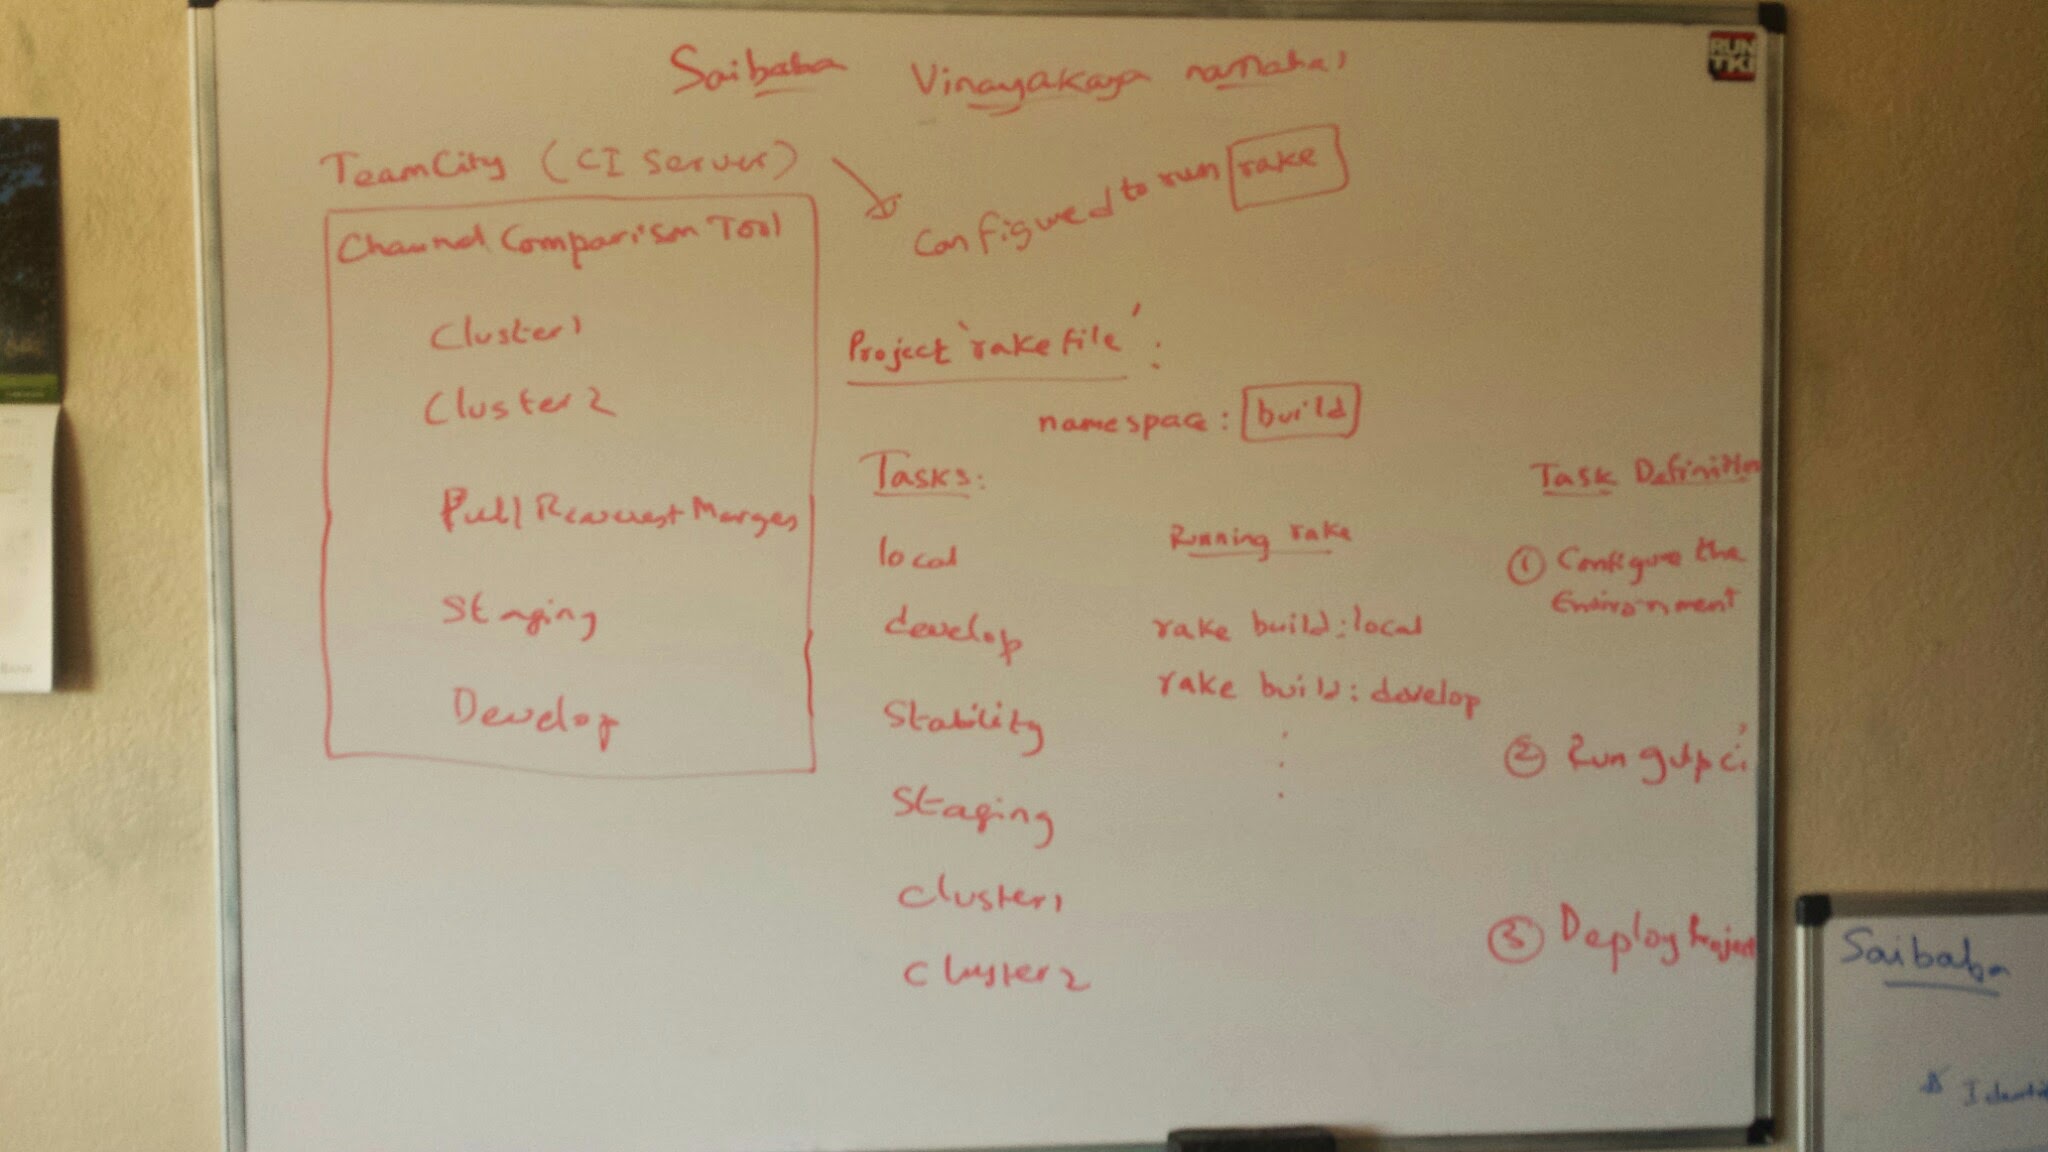 Saibaba Vinayakaya namaha,
RUN
TKI
TeamCity (CI Server)
Configured to run rake
Channel Comparison Tool
Cluster1
Cluster2
Pull Request Merges
Staging
Develop
Project 'rakefile' :
namespace: build
Tasks:
local
develop
Stability
Staging
Cluster1
Cluster2
Running rake
rake build:local
rake build:develop
Task Definition
1 Configure the
Environment
2 Run gulp ci
3 Deploy Project
Saibaba